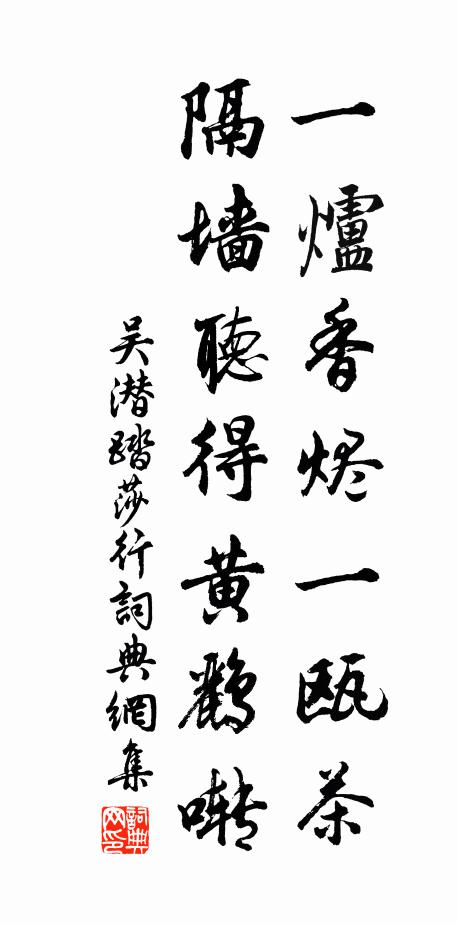 一爐香烬一瓯茶
隔墙聽得黄鸝啭
吴潜踏莎行詞典網集
詞典网印